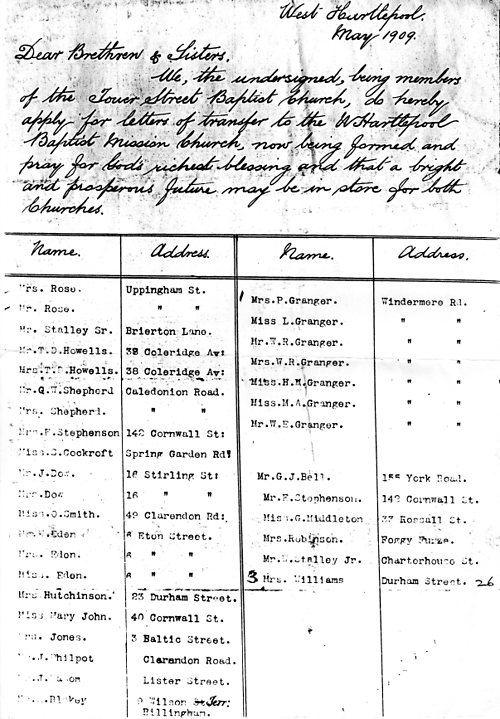 West Hartlepool.
May 1909.
Dear Brethren & Sisters.
We, the undersigned, being members
of the Tower Street Baptist Church, do hereby
apply for letters of transfer to the W Hartlepool
Baptist Mission Church, now being formed and
pray for God's richest blessing and that a bright
and prosperous future may be in store for both
Churches.
Name. Address. Name. Address.
Mrs. Rose. Uppingham St.
Mr. Rose. " "
Mr. Stalley Sr. Brierton Lane.
Mr.T.D.Howells. 38 Coleridge Av:
Mrs.T.D.Howells. 38 Coleridge Av:
Mr.Q.W.Shepherd Caledonion Road.
Mrs. Shepherd. " "
Mrs.F.Stephenson 142 Cornwall St:
Miss.S.Cockroft Spring Garden Rd:
Mr.J.Dow. 16 Stirling St:
Mrs.Dow 16 " "
Miss.O.Smith. 49 Clarendon Rd:
Eden 8 Eton Street.
Mrs. Eden. 8 " "
Miss. Eden. 8 " "
Mrs.Hutchinson. 23 Durham Street.
Miss Mary John. 40 Cornwall St.
Mrs. Jones. 3 Baltic Street.
Mr.J.Philpot Clarandon Road.
Lister Street.
Blakey 9 Wilson St Terr:
Billingham.
Mrs.P.Granger. Windermere Rd.
Miss L.Granger. " "
Mr.W.R.Granger. " "
Mrs.W.R.Granger. " "
Miss.H.M.Granger. " "
Miss.M.A.Granger. " "
Mr.W.E.Granger. " "
Mr.G.J.Bell. York Road.
Mr.F.Stephenson. 142 Cornwall St.
Miss.G.Middleton 37 Rossall St.
Mrs.Robinson. Foggy Furze.
Stalley Jr. Charterhouse St.
3 Mrs. Williams Durham Street. 26